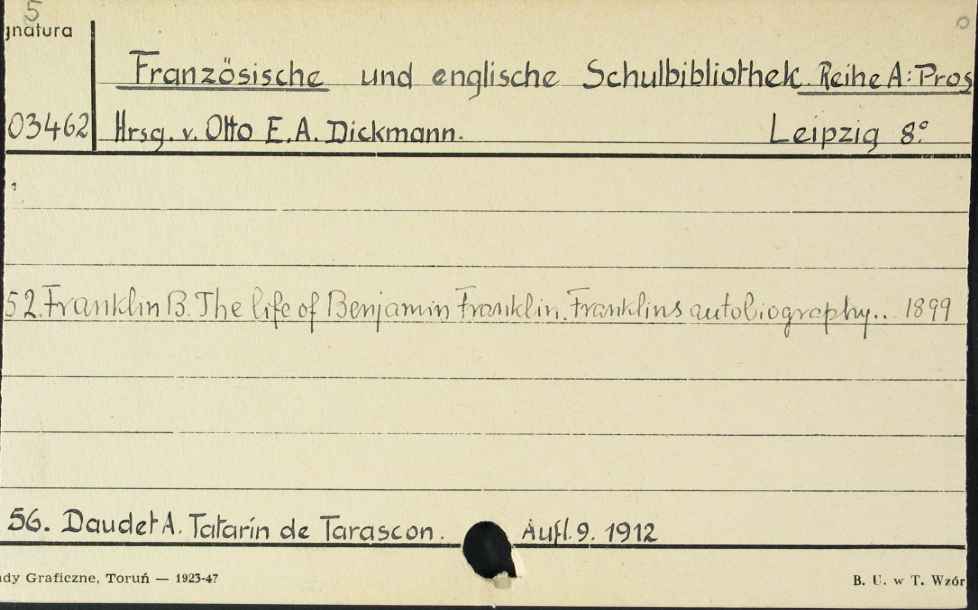 5
gnatura
Französische und englische Schulbibliothek Reihe A: Pros
03462 Hrsg. v. Otto E. A. Dickmann. Leipzig 8°
52. Franklin B. The life of Benjamin Franklin. Franklins autobiography.. 1899
56. Daudet A. Tatarin de Tarascon. Aufl. 9. 1912
dy Graficzne, Toruń — 1923-47 B. U. w T. Wzór